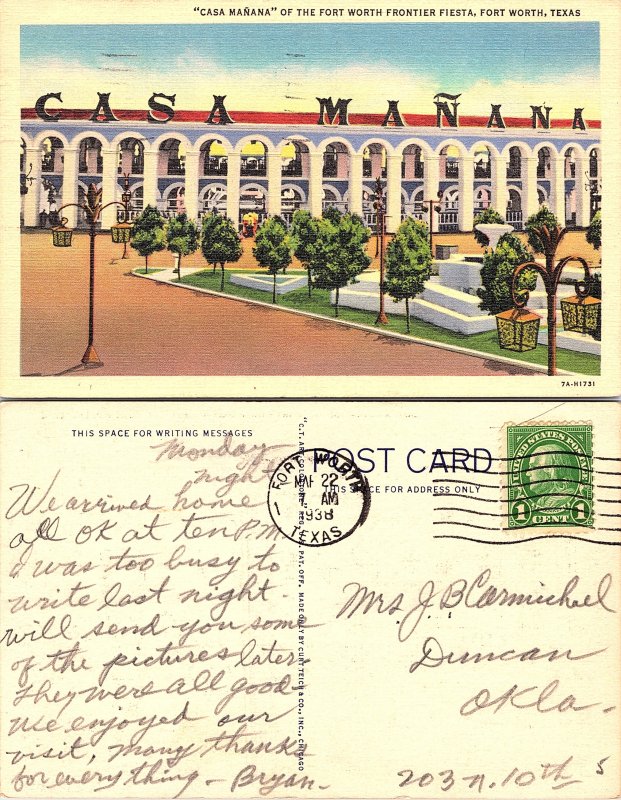 "CASA MAÑANA" OF THE FORT WORTH FRONTIER FIESTA, FORT WORTH, TEXAS
CASA MAÑANA
7A-H1731
THIS SPACE FOR WRITING MESSAGES
Monday
night
We arrived home
all OK at ten P.M.
& was too busy to
write last night.
will send you some
of the pictures later.
They were all good-
We enjoyed our
visit, many thanks
for everything - Bryan.
"C.T. ART-COLORTONE" REG. U.S. PAT. OFF. MADE ONLY BY CURT TEICH & CO., INC., CHICAGO
POST CARD
THIS SPACE FOR ADDRESS ONLY
FORT WORTH
1
MAR 22
AM
1938
TEXAS
UNITED STATES POSTAGE
1 CENT 1
Mrs J. B Carmichael
Duncan
Okla-
203 N. 10th
5